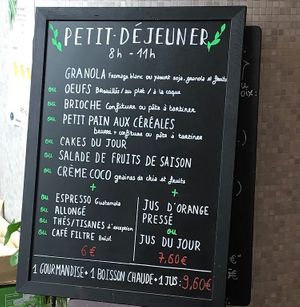 PETIT-DÉJEUNER
8h - 11h
GRANOLA fromage blanc ou yaourt soja, granola et fruits
ou OEUFS Brouillés / au plat / à la coque
ou BRIOCHE Confiture ou pâte à tartiner
ou PETIT PAIN AUX CÉRÉALES
beurre + confiture ou pâte à tartiner
ou CAKES DU JOUR
ou SALADE DE FRUITS DE SAISON
ou CRÈME COCO graines de chia et fruits
+ +
ESPRESSO Guatemala
ou ALLONGÉ
ou THÉS/TISANES d'exception
ou CAFÉ FILTRE Brésil
6€
JUS D'ORANGE
PRESSÉ
ou
JUS DU JOUR
7,60€
1 GOURMANDISE + 1 BOISSON CHAUDE + 1 JUS: 9,60€